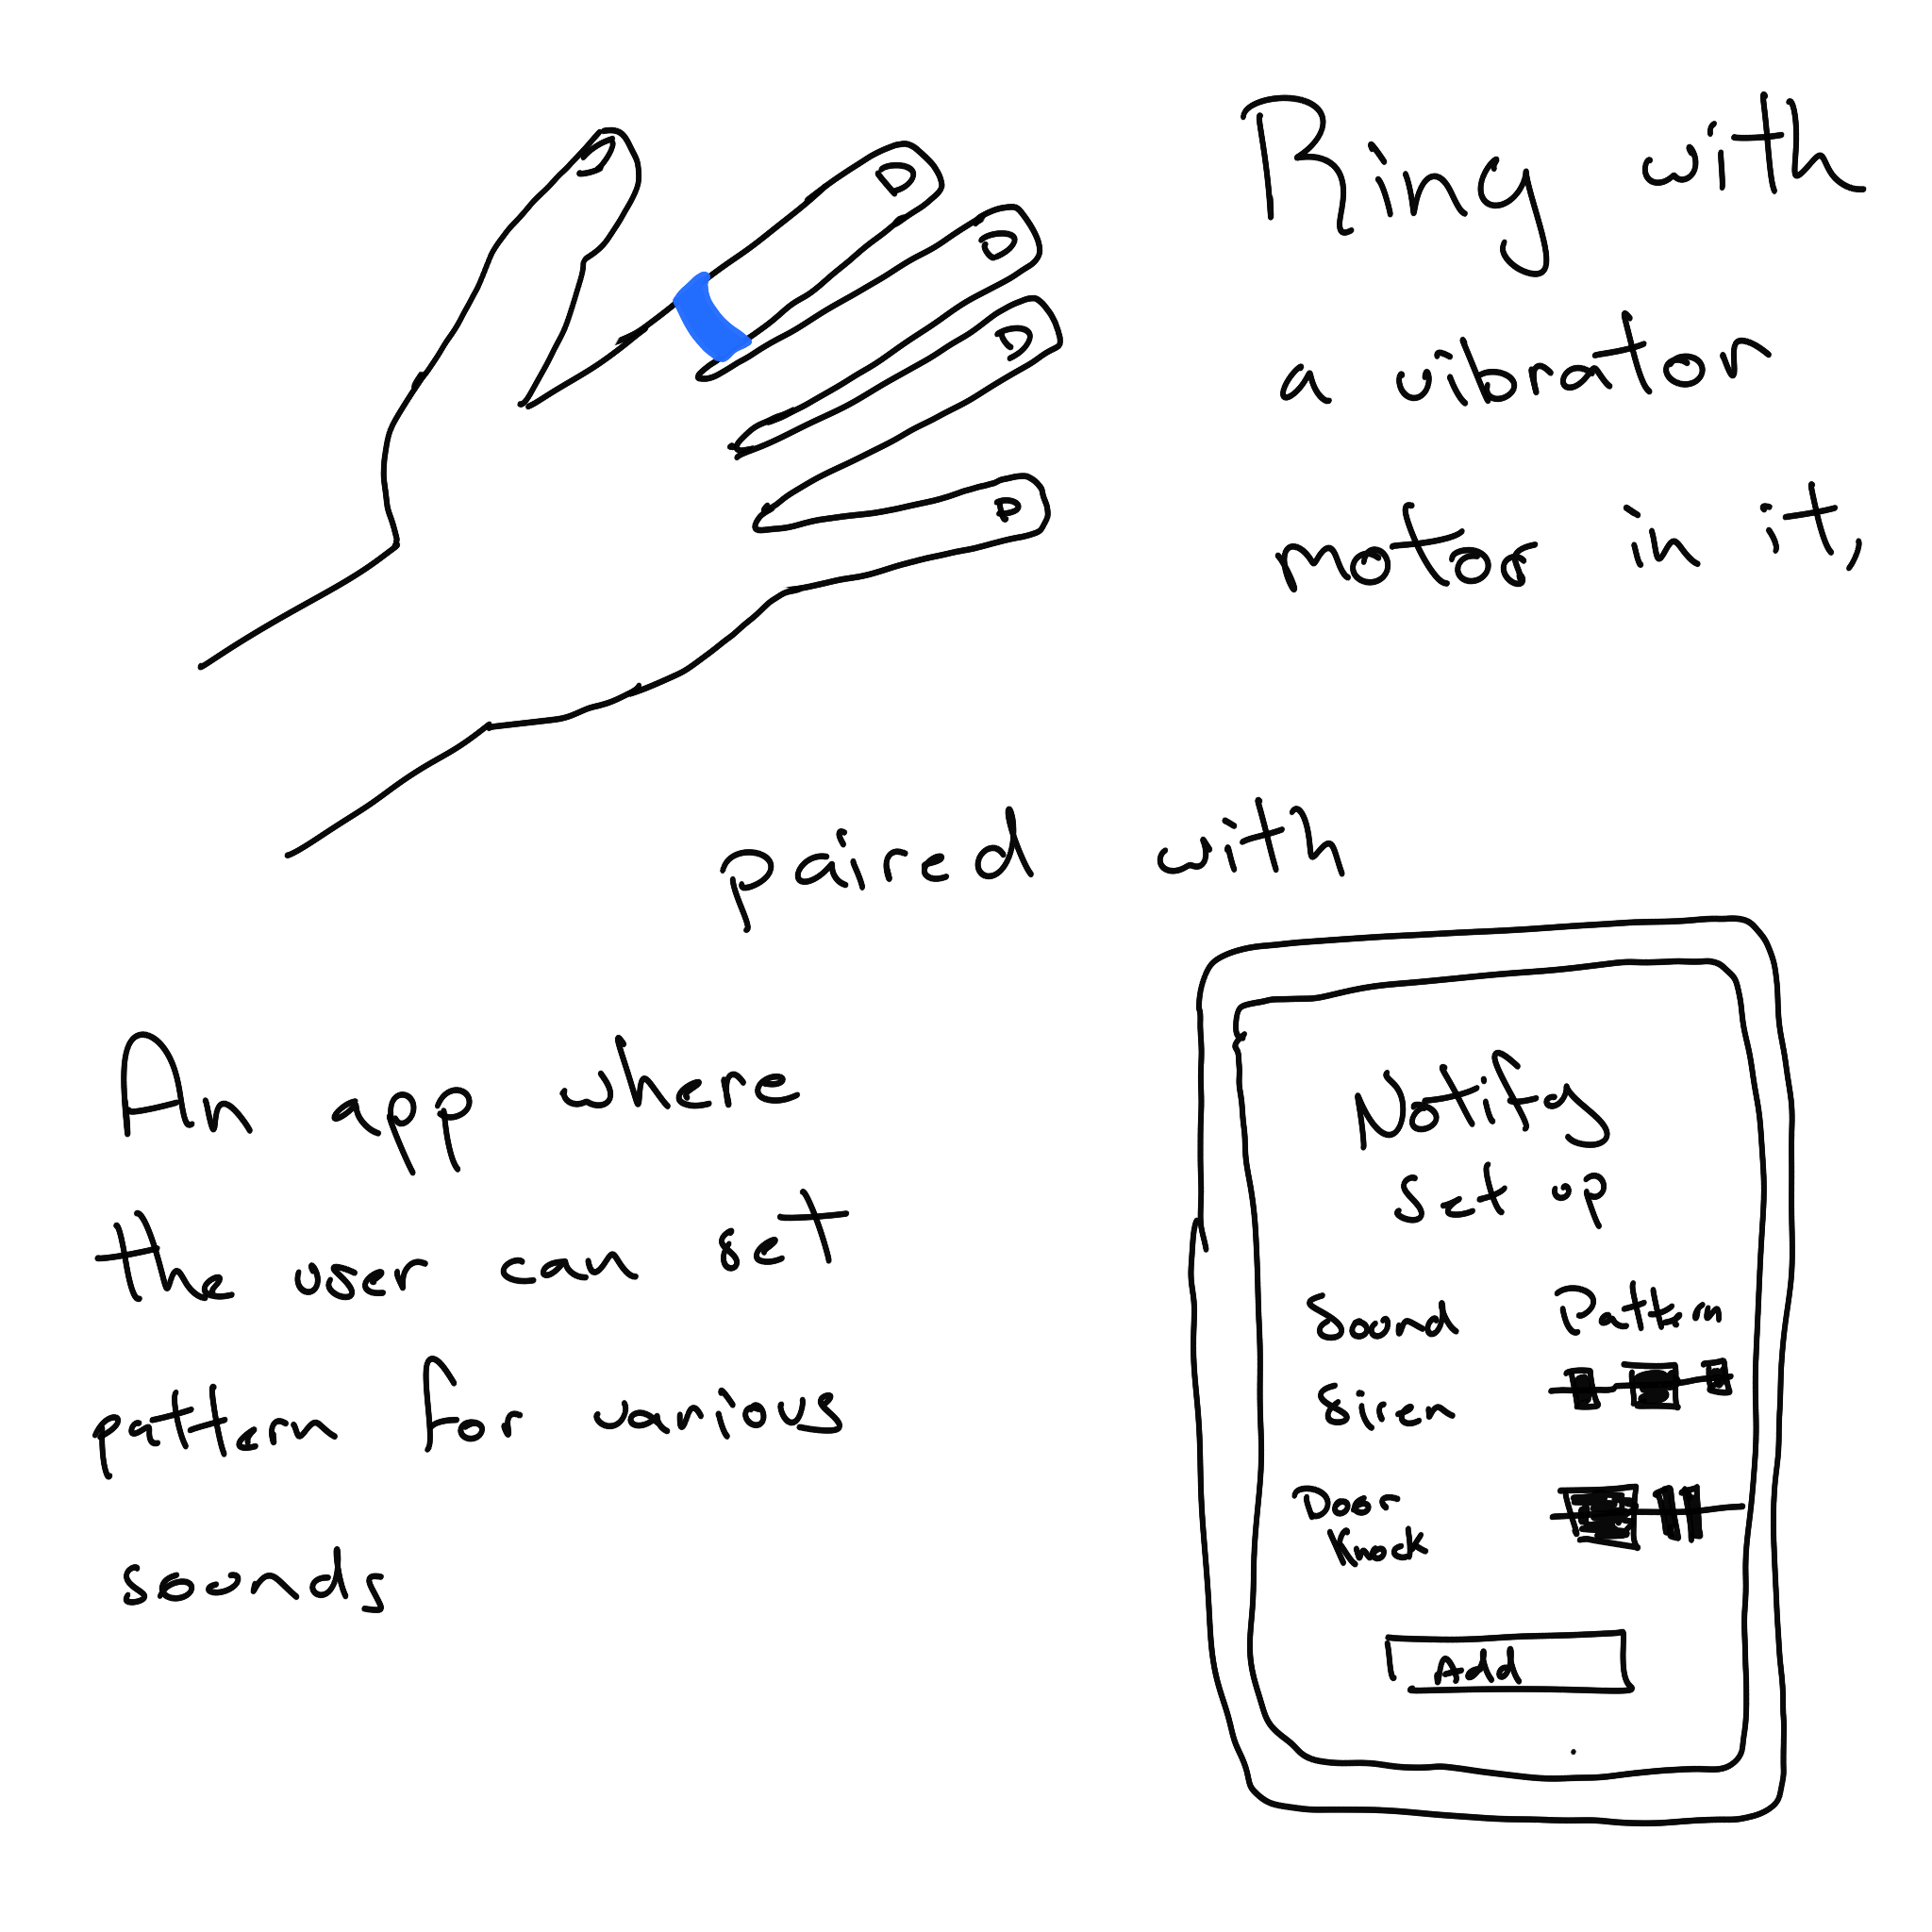 Ring with
a vibrator
motor in it,
paired with
An app where
the user can set
pattern for various
sounds
Notify
Set up
Sound Pattern
Siren
Door
Knock
Add